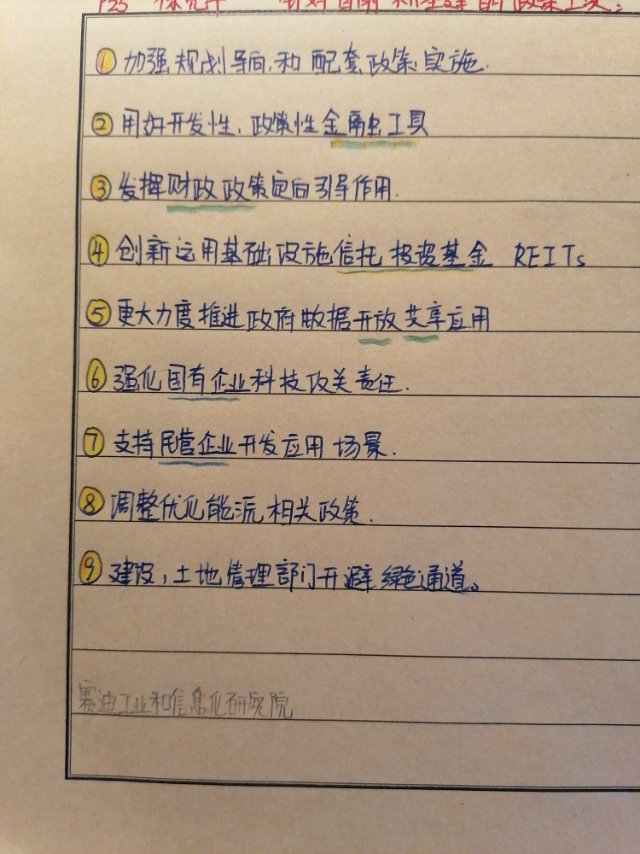 P25
的政策工具:
① 加强规划导向,和 配套政策实施.
② 用好开发性、政策性金融工具
③ 发挥财政政策定向引导作用.
④ 创新运用基础设施信托投资基金 REITs
⑤ 更大力度推进政府数据开放共享应用
⑥ 强化国有企业科技攻关责任.
⑦ 支持民营企业开发应用 场景.
⑧ 调整优化能源相关政策.
⑨ 建设,土地管理部门开辟绿色通道。
赛迪工业和信息化研究院